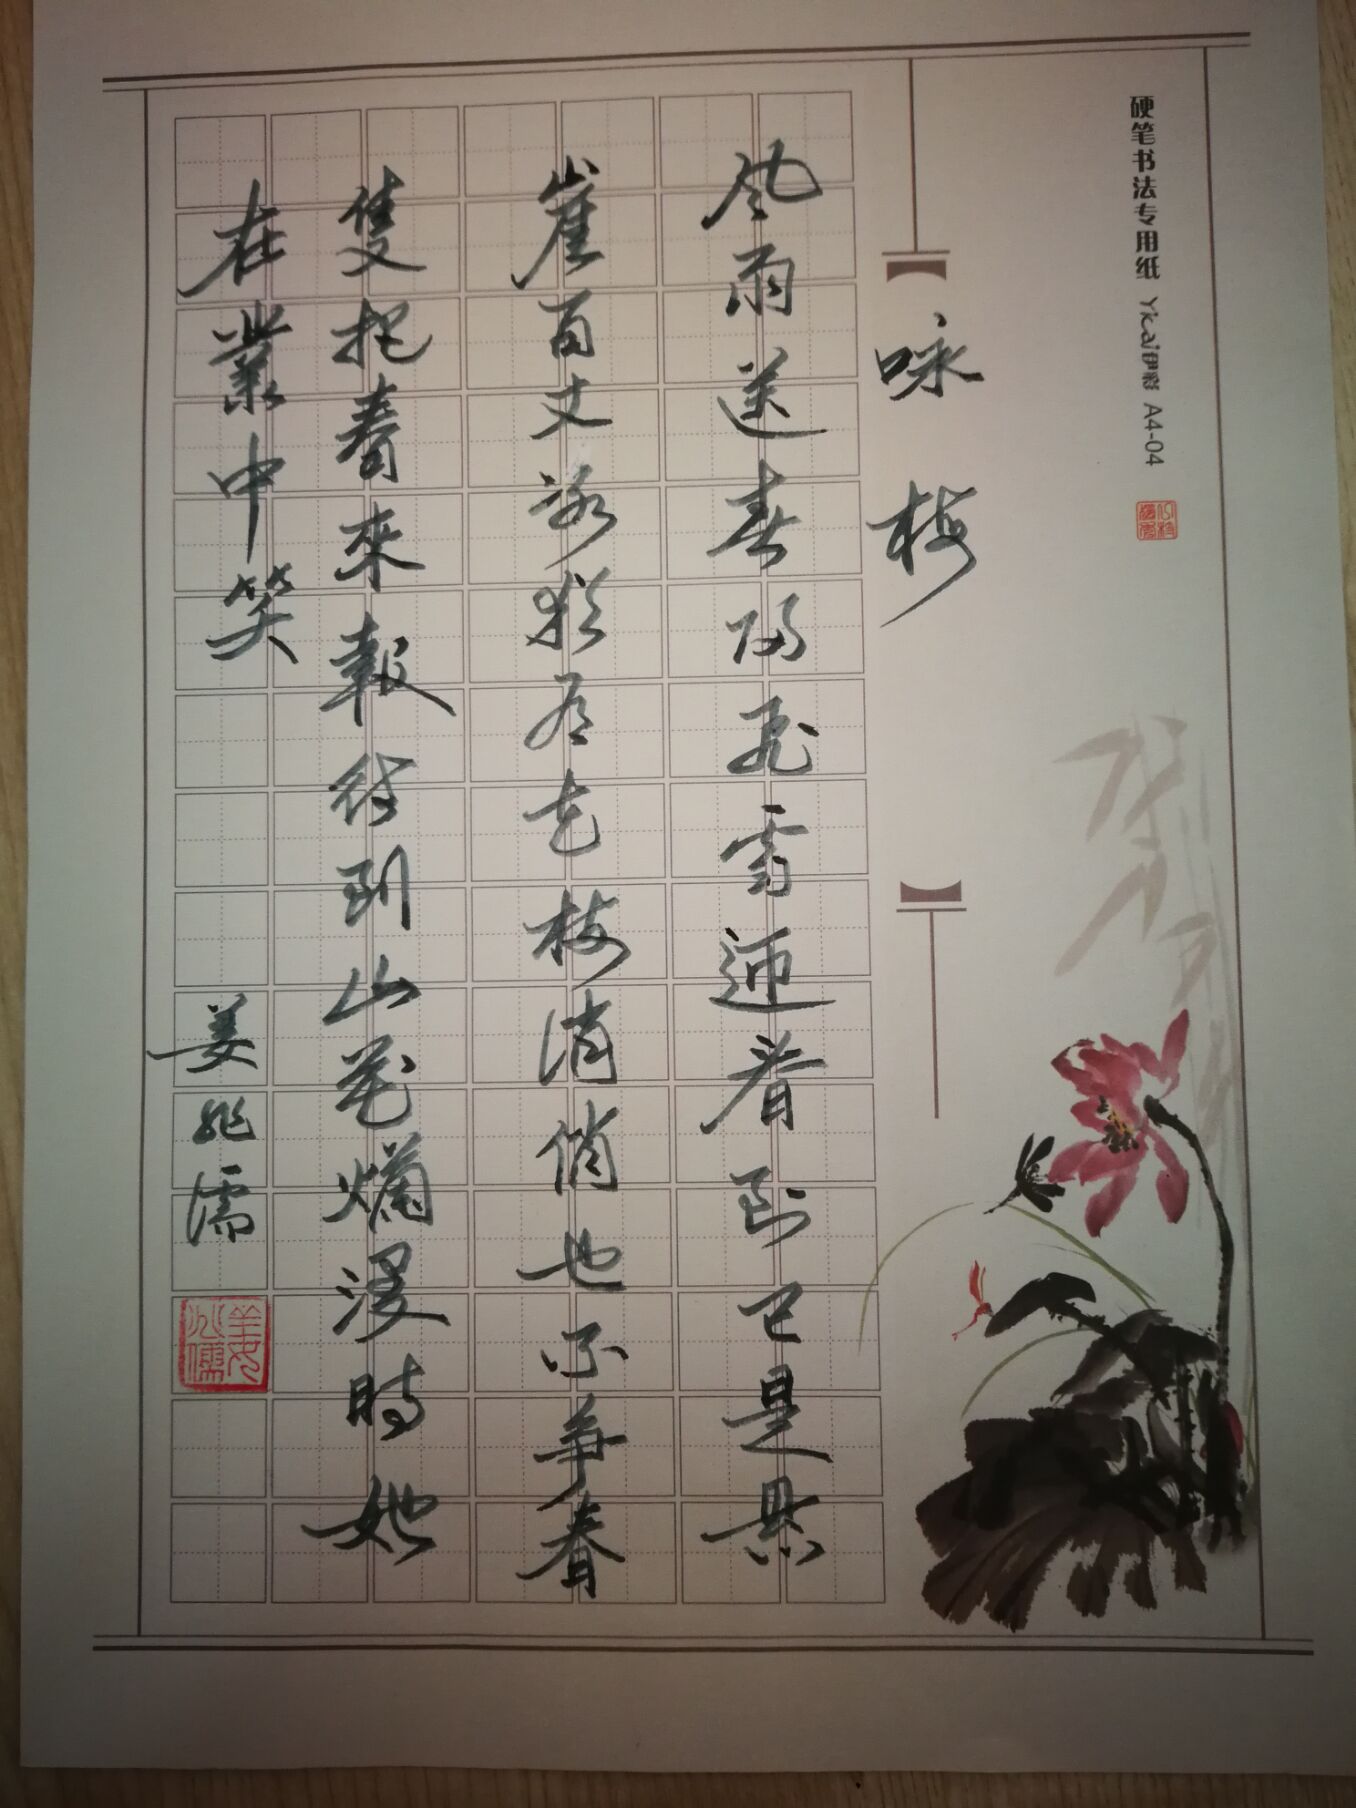 硬笔书法专用纸 Yicai伊彩 A4-04
咏梅
风雨送春归飛雪迎春到已是悬
崖百丈冰犹有花枝俏俏也不争春
隻把春來報待到山花爛漫時她
在叢中笑
姜兆濡
姜兆儒